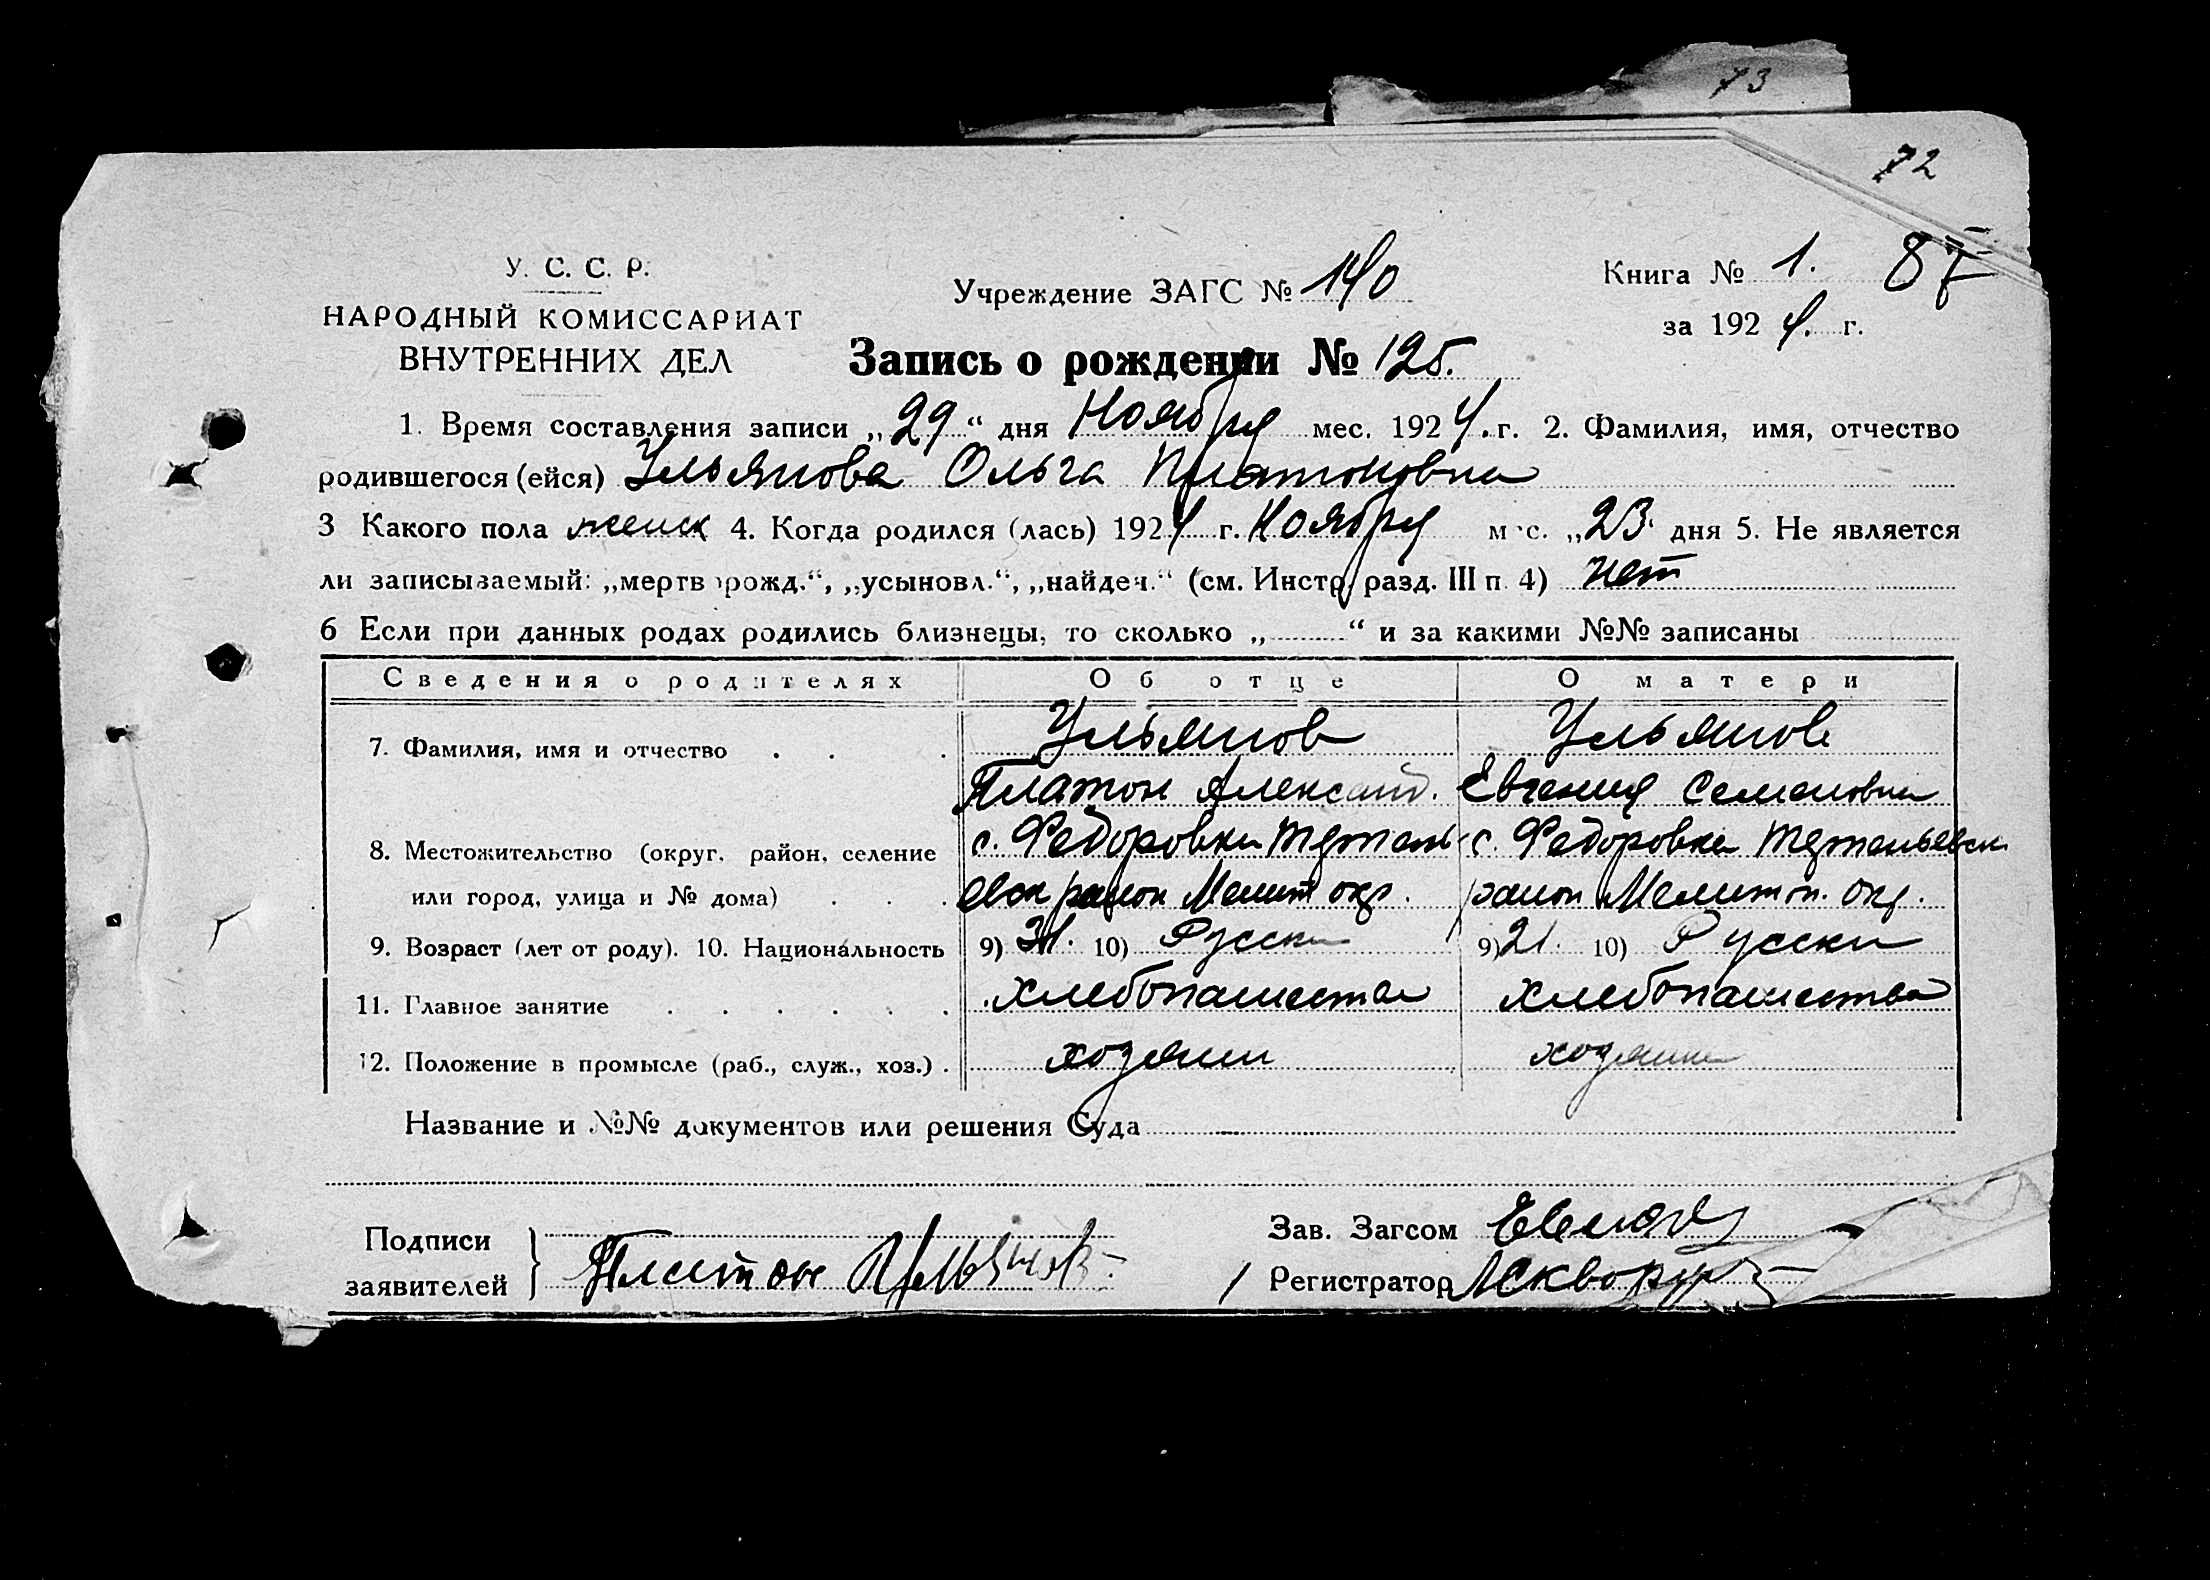 73
72
У. С. С. Р.
НАРОДНЫЙ КОМИССАРИАТ
ВНУТРЕННИХ ДЕЛ
Учреждение ЗАГС № 140
Книга № 1. 87
за 1924. г.
Запись о рождении № 125.
1. Время составления записи „29“ дня Ноября мес. 1924. г. 2. Фамилия, имя, отчество
родившегося (ейся) Ульянова Ольга Платоновна
3 Какого пола женск 4. Когда родился (лась) 1924 г. Ноября мес. „23“ дня 5. Не является
ли записываемый: „мертворожд.“, „усыновл.“, „найдеч.“ (см. Инстр. разд. III п. 4) нет
6 Если при данных родах родились близнецы, то сколько „ “ и за какими №№ записаны
Сведения о родителях Об отце О матери
7. Фамилия, имя и отчество Ульянов Ульянова
Платон Александ. Евгения Семеновна
8. Местожительство (округ, район, селение с. Федоровки с. Федоровка
или город, улица и № дома) район Мелит окр. район Мелитоп. окр.
9. Возраст (лет от роду). 10. Национальность 9) 10) Русски 9) 21. 10) Русски
11. Главное занятие хлебопашество хлебопашество
12. Положение в промысле (раб., служ., хоз.) хозяин хозяин
Название и №№ документов или решения Суда
Подписи
заявителей Платон Ульянов
Зав. Загсом
Регистратор